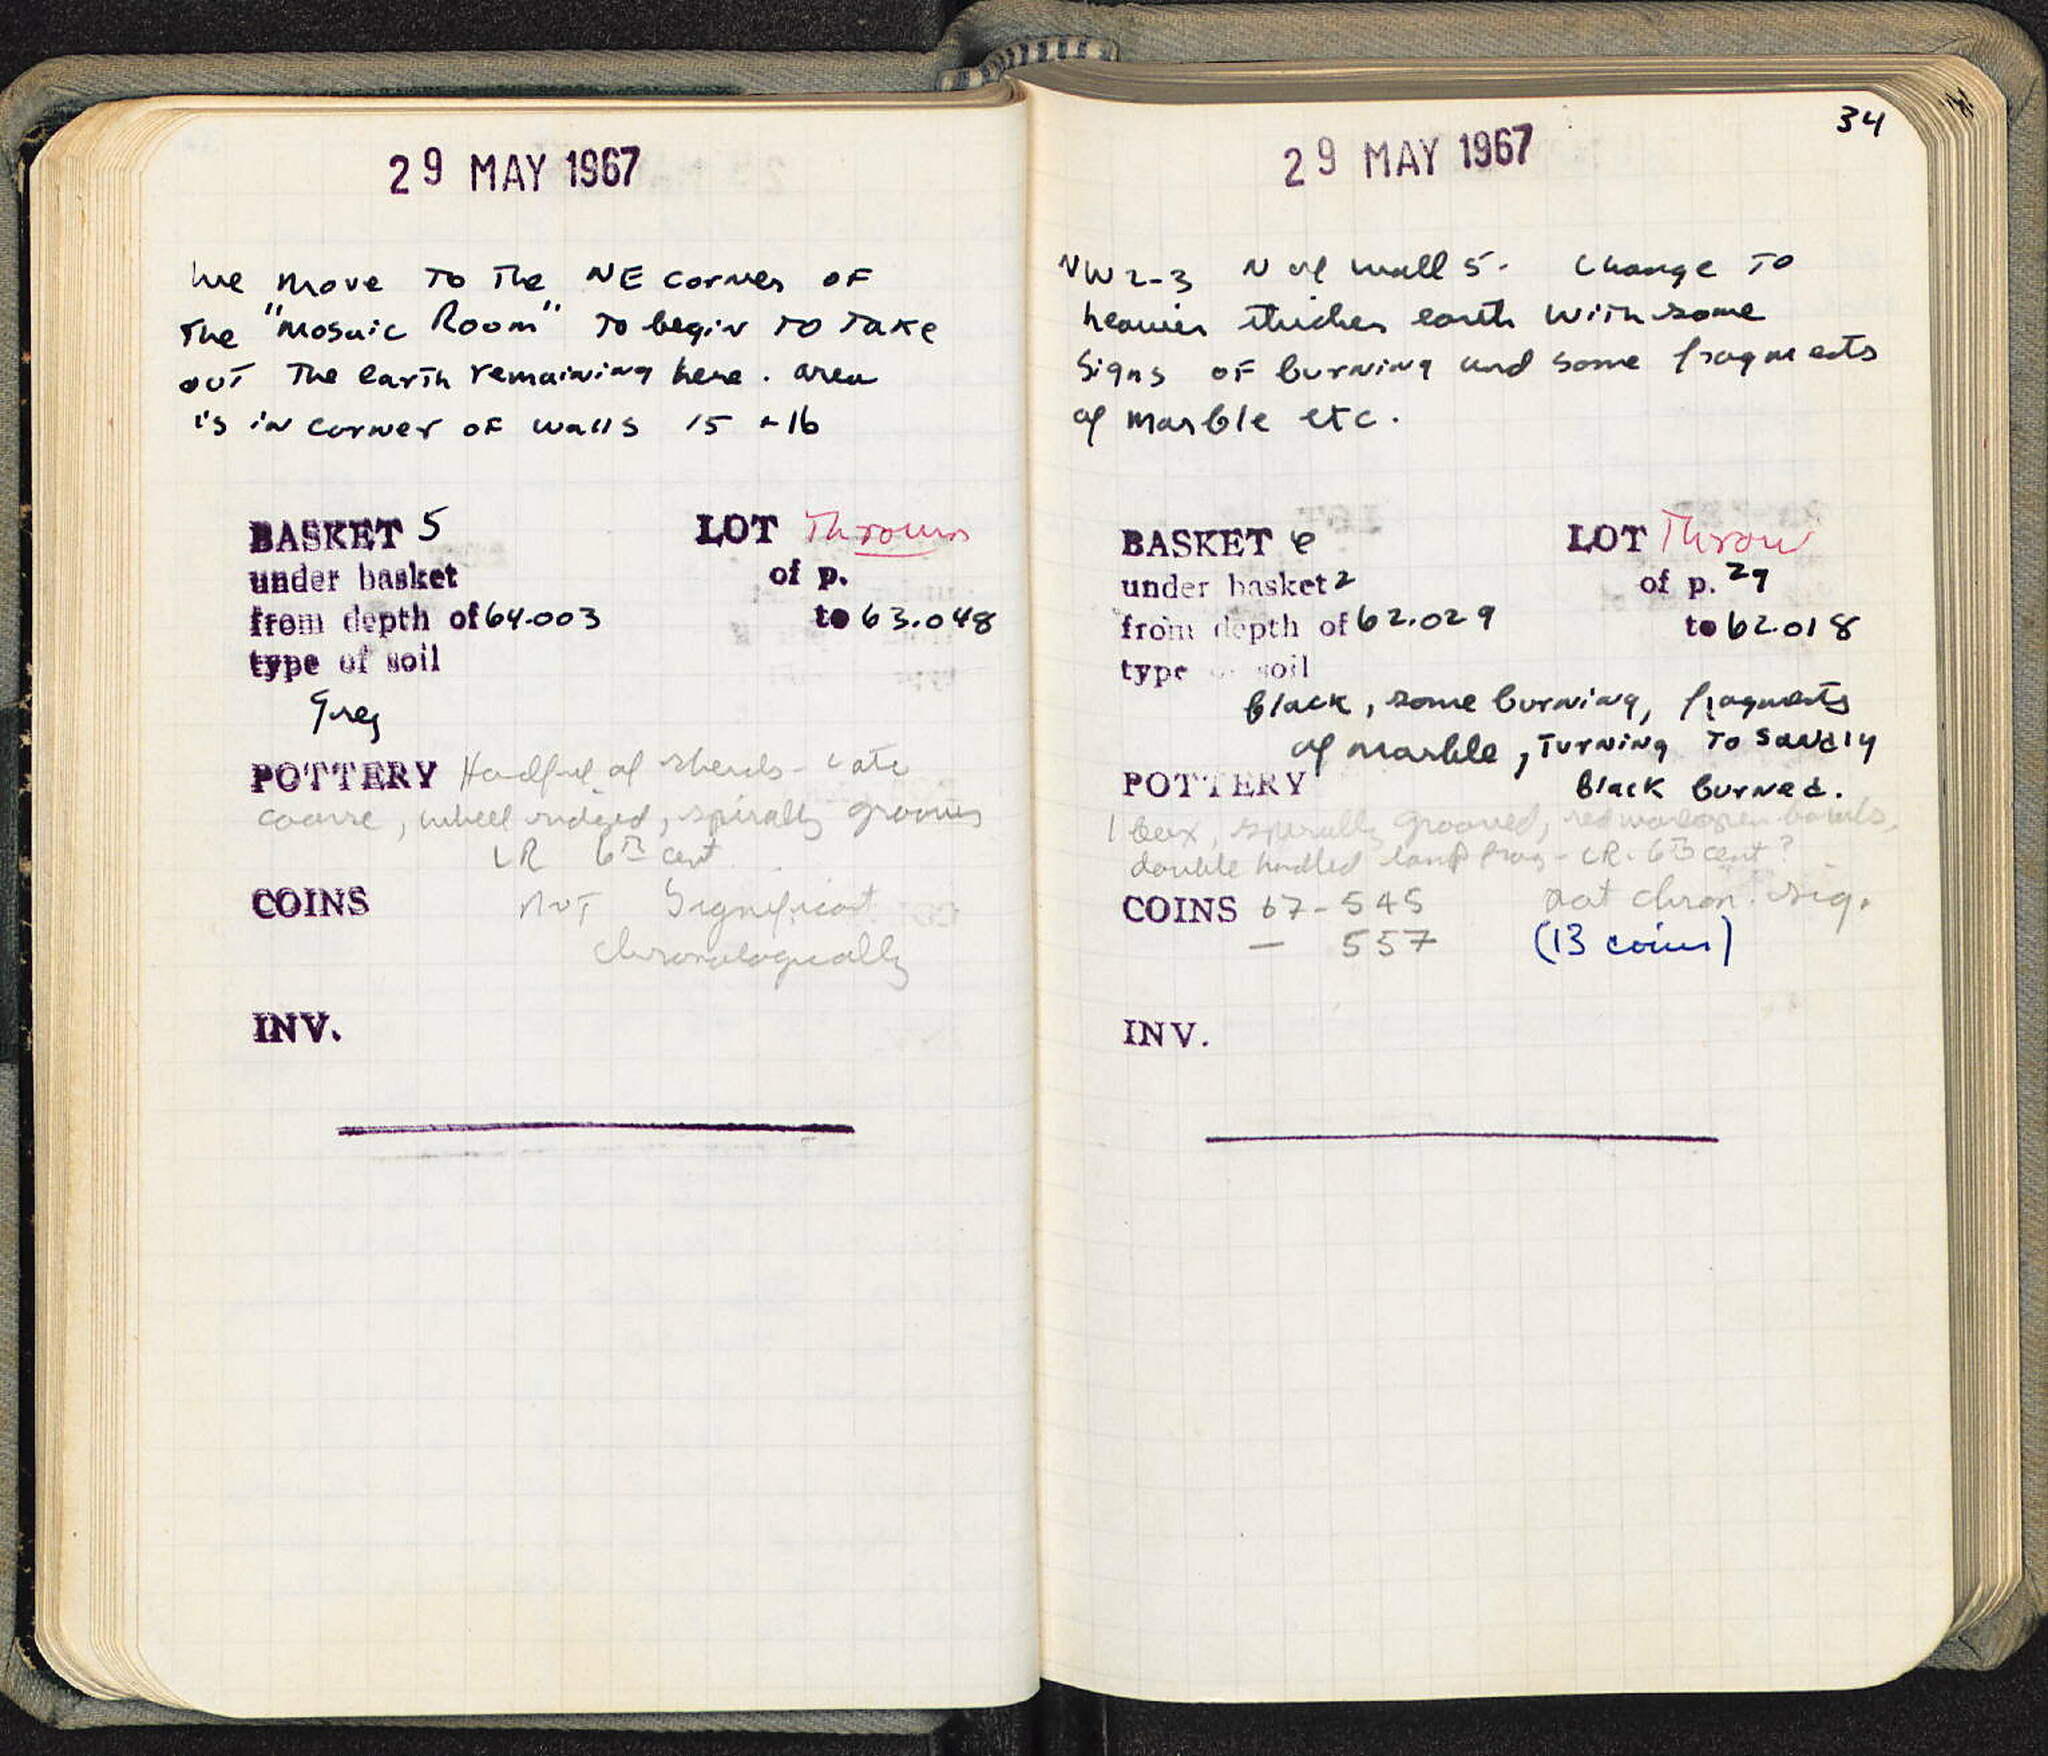 29 MAY 1967
We move to the NE corner of
the "Mosaic Room" to begin to take
out the earth remaining here. area
is in corner of walls 15 + 16
BASKET 5 LOT Thrown
under basket of p.
from depth of 64.003 to 63.048
type of soil
Grey
POTTERY Handful of sherds - late
coarse, wheel ridged, spirally grooves
LR 6th cent
COINS Not Significant
chronologically
INV.
34
29 MAY 1967
NW 2-3 N of wall 5. Change to
heavier thicker earth with some
signs of burning and some fragments
of marble etc.
BASKET 6 LOT Throw
under basket 2 of p. 29
from depth of 62.029 to 62.018
type of soil
black, some burning, fragments
of marble, turning to sandy
POTTERY black burned.
1 box, spirally grooved, bowls,
double handled lamp frag - LR. 6th cent?
COINS 67-545 not chron. sig.
— 557 (13 coins)
INV.